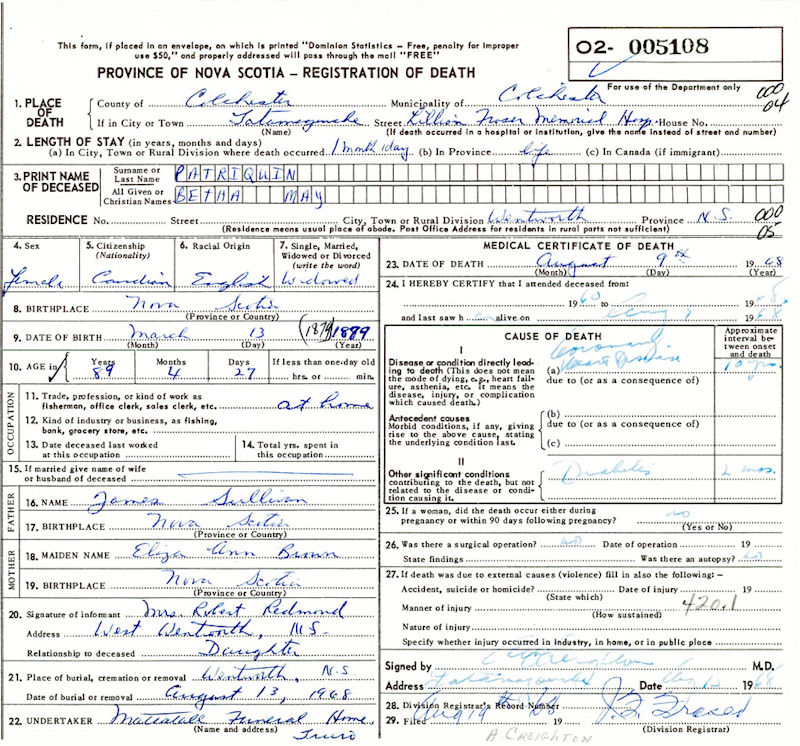 This form, if placed in an envelope, on which is printed "Dominion Statistics - Free, penalty for improper
use $50," and properly addressed will pass through the mail "FREE"
O2- 005108
PROVINCE OF NOVA SCOTIA - REGISTRATION OF DEATH
For use of the Department only
000
04
1. PLACE OF DEATH
County of Colchester Municipality of Colchester
If in City or Town Tatamagouche Street Lillian Fraser Memorial Hosp. House No.
(Name) (If death occurred in a hospital or institution, give the name instead of street and number)
2. LENGTH OF STAY (in years, months and days)
(a) In City, Town or Rural Division where death occurred 1 month 1 day (b) In Province life (c) In Canada (if immigrant)
3. PRINT NAME OF DECEASED
Surname or Last Name PATRIQUIN
All Given or Christian Names BETHA MAY
RESIDENCE No. Street City, Town or Rural Division Wentworth Province N.S.
000
05
(Residence means usual place of abode. Post Office Address for residents in rural parts not sufficient)
4. Sex
Female
5. Citizenship
(Nationality)
Candian
6. Racial Origin
English
7. Single, Married,
Widowed or Divorced
(write the word)
Widowed
8. BIRTHPLACE Nova Scotia
(Province or Country)
9. DATE OF BIRTH March 13 (1879) 1879
(Month) (Day) (Year)
10. AGE in
Years Months Days If less than one day old
89 4 27 hrs. or min.
OCCUPATION
11. Trade, profession, or kind of work as
fisherman, office clerk, sales clerk, etc. at home
12. Kind of industry or business, as fishing,
bank, grocery store, etc.
13. Date deceased last worked
at this occupation
14. Total yrs. spent in
this occupation
15. If married give name of wife
or husband of deceased
FATHER
16. NAME James Sullivan
17. BIRTHPLACE Nova Scotia
(Province or Country)
MOTHER
18. MAIDEN NAME Eliza Ann Brown
19. BIRTHPLACE Nova Scotia
(Province or Country)
20. Signature of informant Mrs. Robert Redmond
Address West Wentworth, N.S.
Relationship to deceased Daughter
21. Place of burial, cremation or removal Wentworth, N.S
Date of burial or removal August 13, 1968
22. UNDERTAKER Mattatall Funeral Home,
(Name and address) Truro
MEDICAL CERTIFICATE OF DEATH
23. DATE OF DEATH August 9th 1968
(Month) (Day) (Year)
24. I HEREBY CERTIFY that I attended deceased from:
1960 to Aug 1968
and last saw h alive on 1968
CAUSE OF DEATH
Approximate
interval be-
tween onset
and death
I
Disease or condition directly lead-
ing to death (This does not mean
the mode of dying, e.g., heart fail-
ure, asthenia, etc. It means the
disease, injury, or complication
which caused death.)
(a) Coronary
Heart Disease 10 yrs.
due to (or as a consequence of)
Antecedent causes
Morbid conditions, if any, giving
rise to the above cause, stating
the underlying condition last.
(b)
due to (or as a consequence of)
(c)
II
Other significant conditions
contributing to the death, but not
related to the disease or condi-
tion causing it.
Diabetis 2 mos.
25. If a woman, did the death occur either during
pregnancy or within 90 days following pregnancy? no
(Yes or No)
26. Was there a surgical operation? no Date of operation 19
State findings Was there an autopsy? no
27. If death was due to external causes (violence) fill in also the following:-
Accident, suicide or homicide? Date of injury 19
(State which)
Manner of injury 420.1
(How sustained)
Nature of injury
Specify whether injury occurred in industry, in home, or in public place
Signed by Creighton M.D.
Address Tatamagouche Date Aug 1968
28. Division Registrar's Record Number
29. Filed Aug 19th 68 19
(Division Registrar)
A CREIGHTON